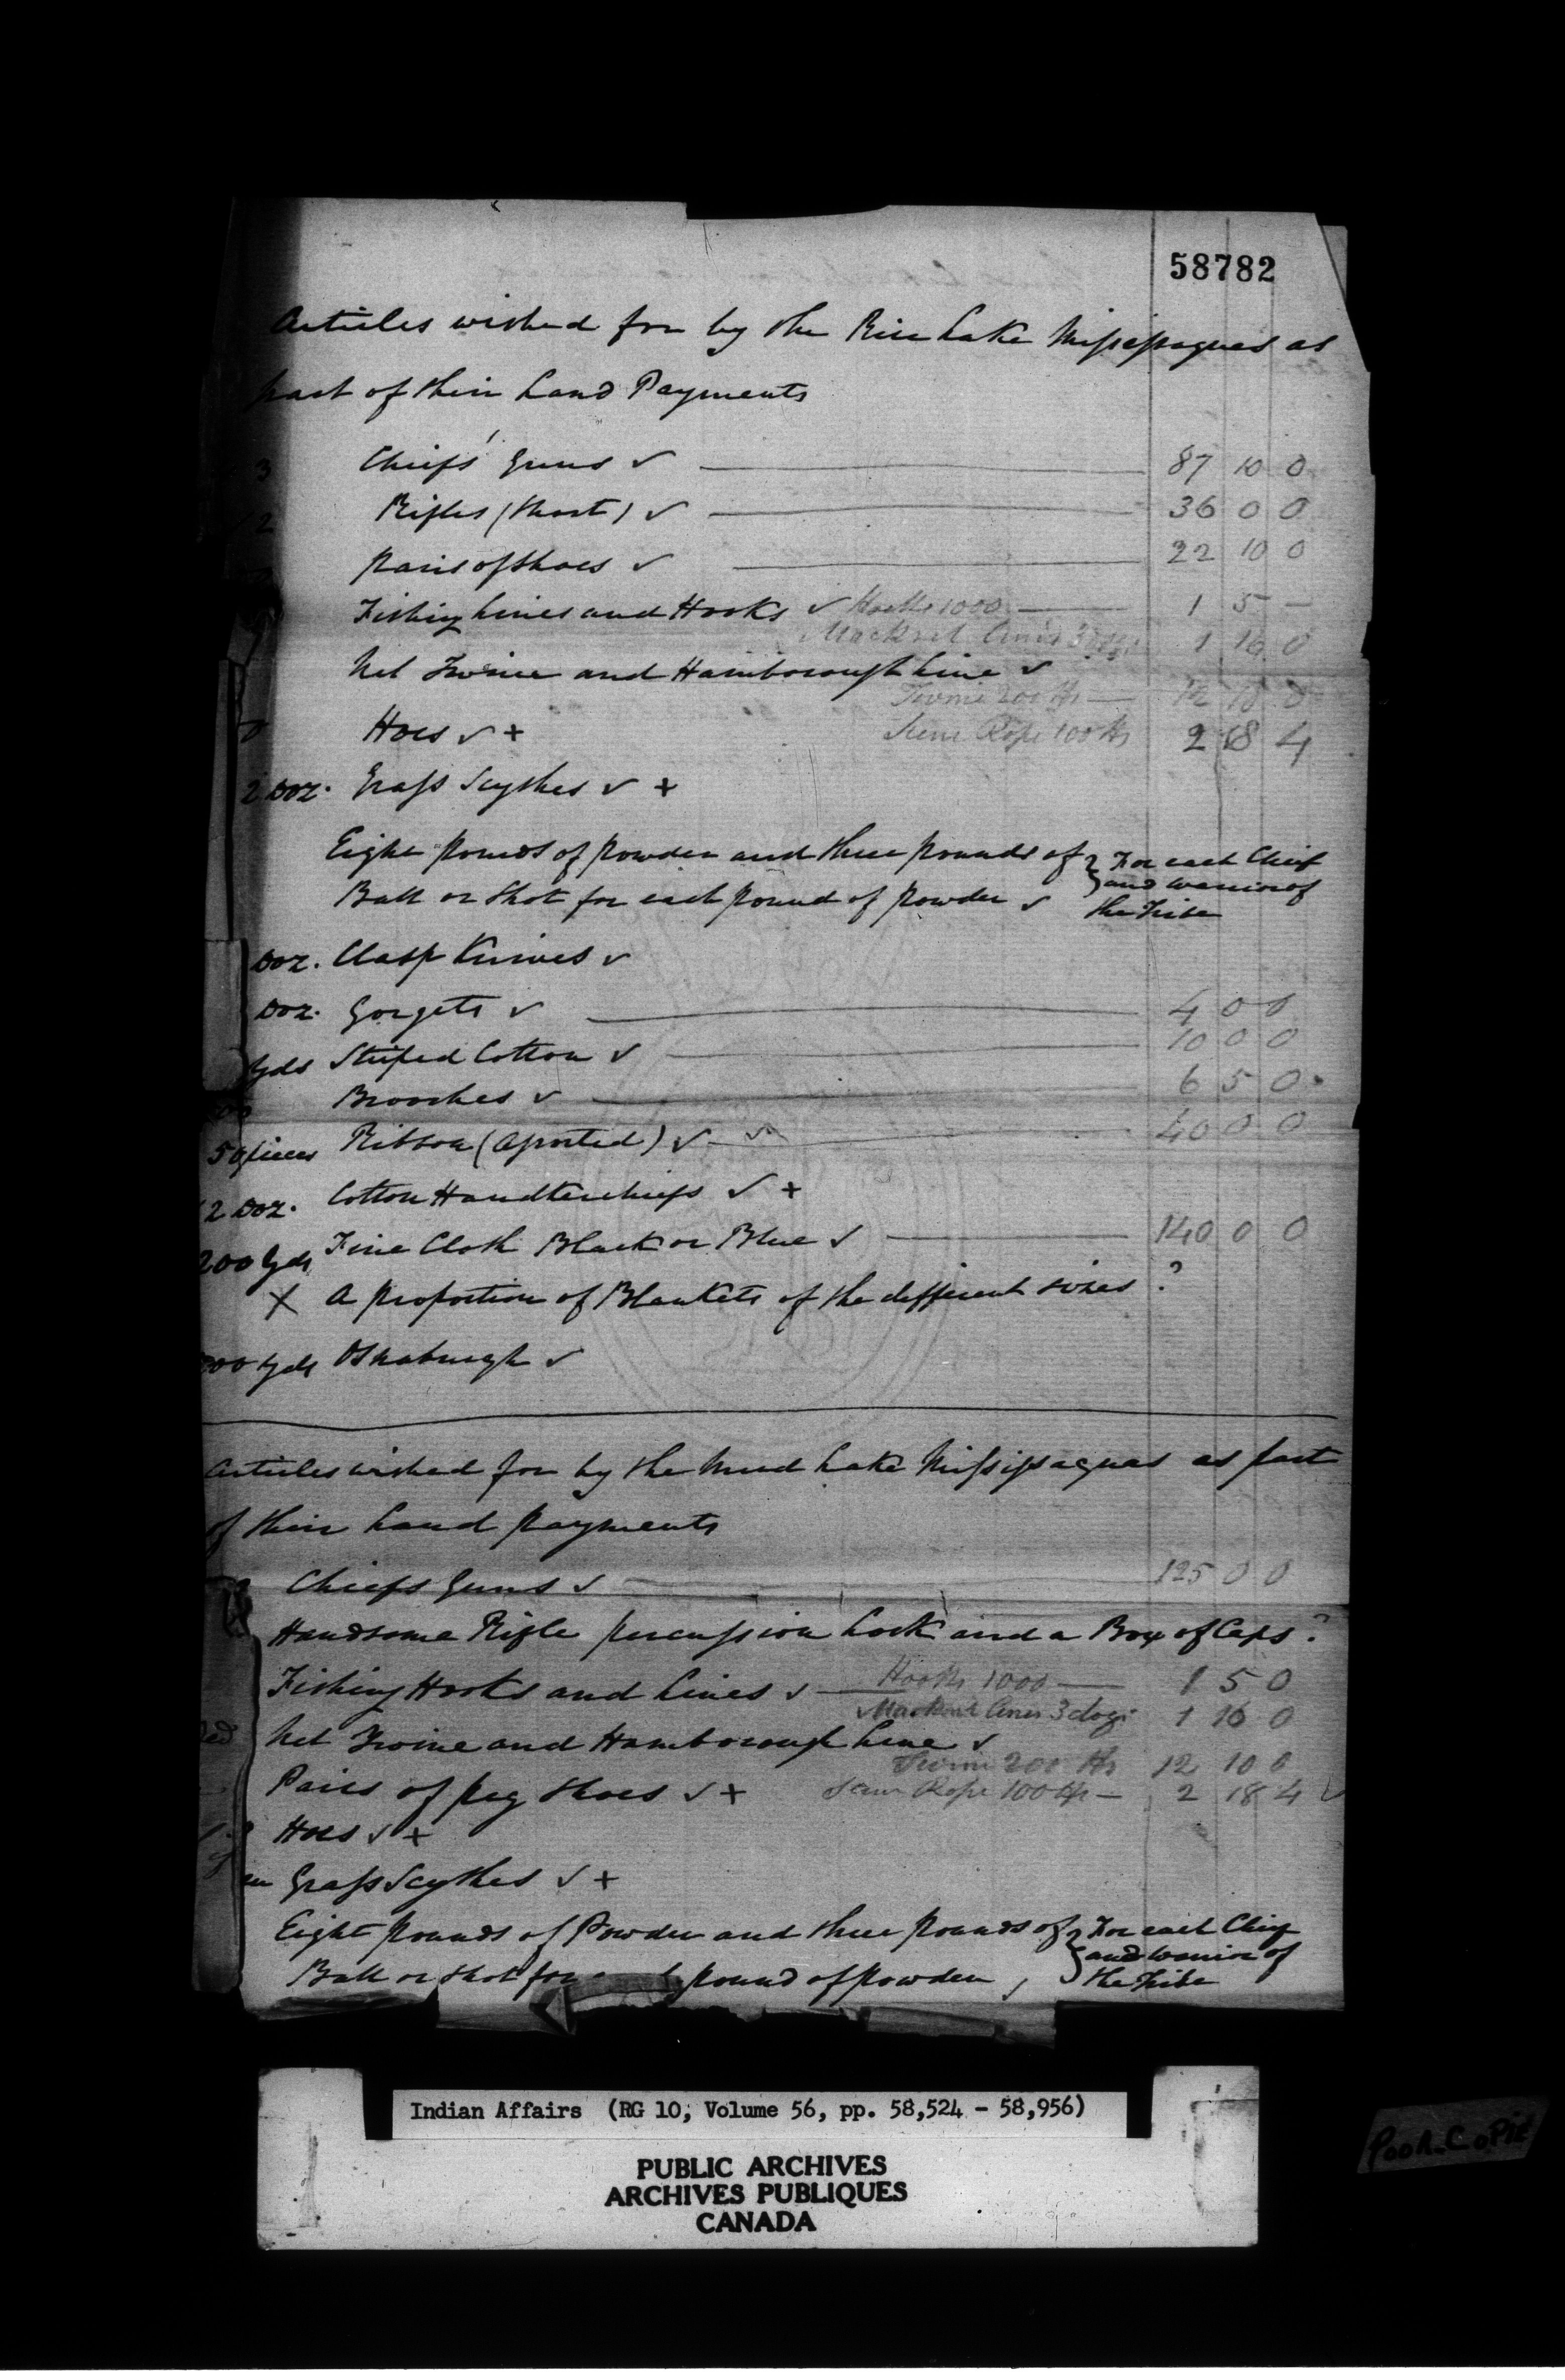 58782
Articles wished for by the Rice Lake Mississagues as
part of their Land Payments
3 Chiefs' Guns ✓ 87 10 0
2 Rifles (Short) ✓ 36 0 0
Pairs of Shoes ✓ 22 10 0
Fishing Lines and Hooks ✓ Hooks 1000 1 5 –
Mackrel lines 3 doz 1 16 0
Net Twine and Hamborough Line ✓
Twine 200 lbs 12 10 0
Hoes ✓ + Seine Rope 100 lbs 2 18 4
2 Doz. Grass Scythes ✓ +
Eight pounds of powder and three pounds of } For each Chief
Ball or Shot for each pound of powder ✓ and warrior of
the Tribe
Doz. Clasp Knives ✓
Doz. Gorgets ✓ 4 0 0
Yds Striped Cotton ✓ 10 0 0
Brooches ✓ 6 5 0
50 pieces Ribbon (assorted) ✓ 40 0 0
2 Doz. Cotton Handkerchiefs ✓ +
200 Yds Fine Cloth Black or Blue ✓ 140 0 0
X A proportion of Blankets of the different sizes ?
00 Yds Osnaburgh ✓
Articles wished for by the Mud Lake Missisaguas as part
of their Land payments
Chiefs Guns ✓ 125 0 0
Handsome Rifle percussion Lock and a Box of Caps ?
Fishing Hooks and Lines ✓ Hooks 1000 1 5 0
Mackrel lines 3 doz: 1 16 0
Net Twine and Hamborough Line ✓
Twine 200 lbs 12 10 0
Pairs of peg Shoes ✓ + Seine Rope 100 lbs – 2 18 4 ✓
Hoes ✓ +
Grass Scythes ✓ +
Eight pounds of Powder and three pounds of } For each Chief
and warrior of
Ball or Shot for pound of powder the Tribe
Indian Affairs (RG 10, Volume 56, pp. 58,524 - 58,956)
PUBLIC ARCHIVES
ARCHIVES PUBLIQUES
CANADA
POOR COPIE